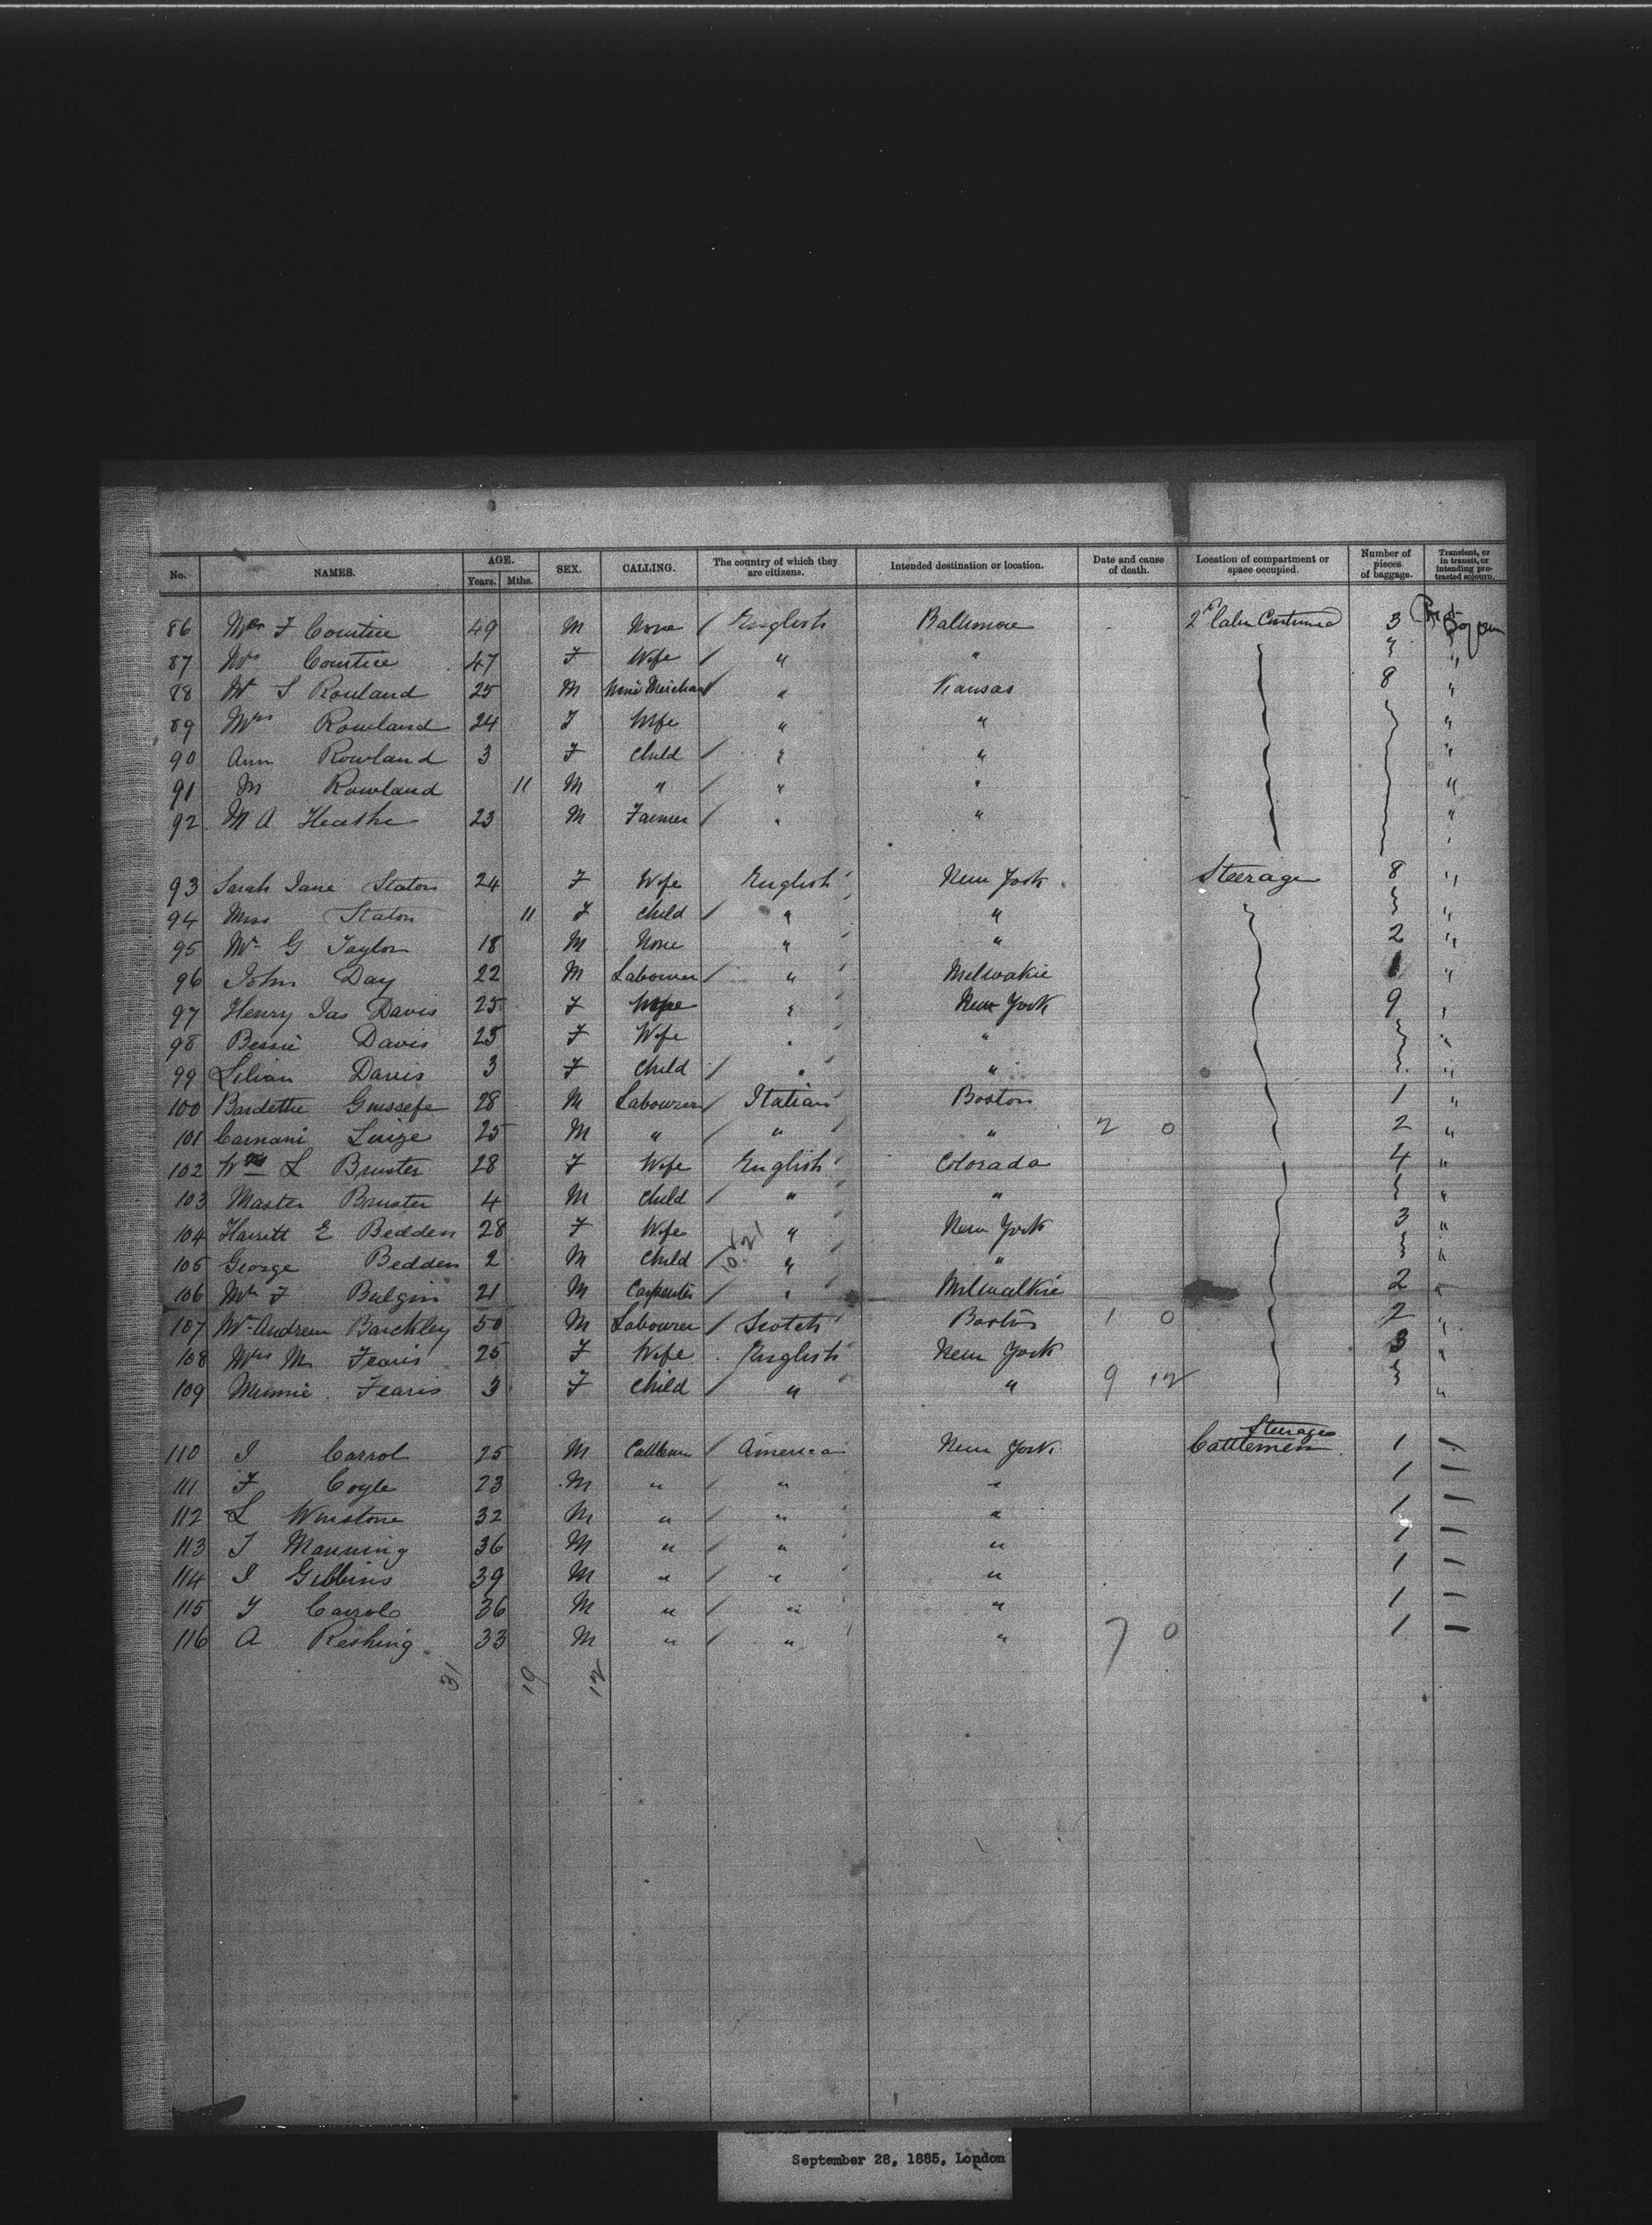 No. NAMES. AGE. Years. Mths. SEX. CALLING. The country of which they are citizens. Intended destination or location. Date and cause of death. Location of compartment or space occupied. Number of pieces of baggage. Transient, or in transit, or intending protracted sojourn.
86 Mr F Courtice 49 M None / English Baltimore 2nd Cabin Continued 3
87 Mrs Courtice 47 F Wife / " " "
88 Mr S Rowland 25 M Wine Merchant / " Kansas 8 "
89 Mrs Rowland 24 F Wife " " "
90 Ann Rowland 3 F Child / " " "
91 M Rowland 11 M " / " " "
92 Mr A Heathe 23 M Farmer / " " "
93 Sarah Jane Staton 24 F Wife English New York Steerage 8 "
94 Miss Staton 11 F Child / " " "
95 Mr G Taylor 18 M None " " 2 "
96 John Day 22 M Labourer / " Milwakie 1 "
97 Henry Jas Davis 25 F Wife " New York 9 "
98 Bessie Davis 25 F Wife " " "
99 Lilian Davis 3 F Child / " " "
100 Bardette Guissefe 28 M Labourer / Italian Boston 1 "
101 Carnani Luige 25 M " / " " 2 0 2 "
102 Mrs L Bruster 28 F Wife English Colorado 4 "
103 Master Bruster 4 M Child / " " "
104 Harritt E Bedden 28 F Wife " New York 3 "
105 George Bedden 2 M Child / " " "
106 Mr F Bulgin 21 M Carpenter / " Milwalkie 2 "
107 Mr Andrew Barckley 50 M Labourer / Scotch Boston 1 0 2 "
108 Mrs M Fearis 25 F Wife English New York 3 "
109 Minnie Fearis 3 F Child / " " 9 12 "
Steerage
110 J Carrol 25 M Cattlemen / America New York Cattlemen 1 —
111 F Coyle 23 M " / " " 1 —
112 L Winstone 32 M " / " " 1 —
113 T Manning 36 M " / " " 1 —
114 J Gibbins 39 M " / " " 1 —
115 T Carrol 36 M " / " " 1 —
116 A Reshing 33 M " / " " 7 0 1 —
31 19 12
September 28, 1885, London